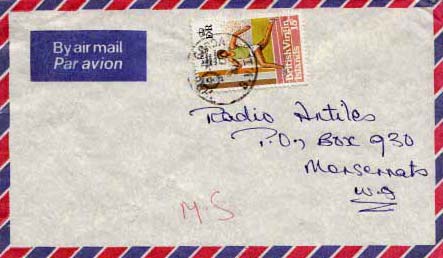 By air mail
Par avion
British Virgin
Islands 15
Radio Antiles
P.O, Box 930
Monserrato
W.I
M.S